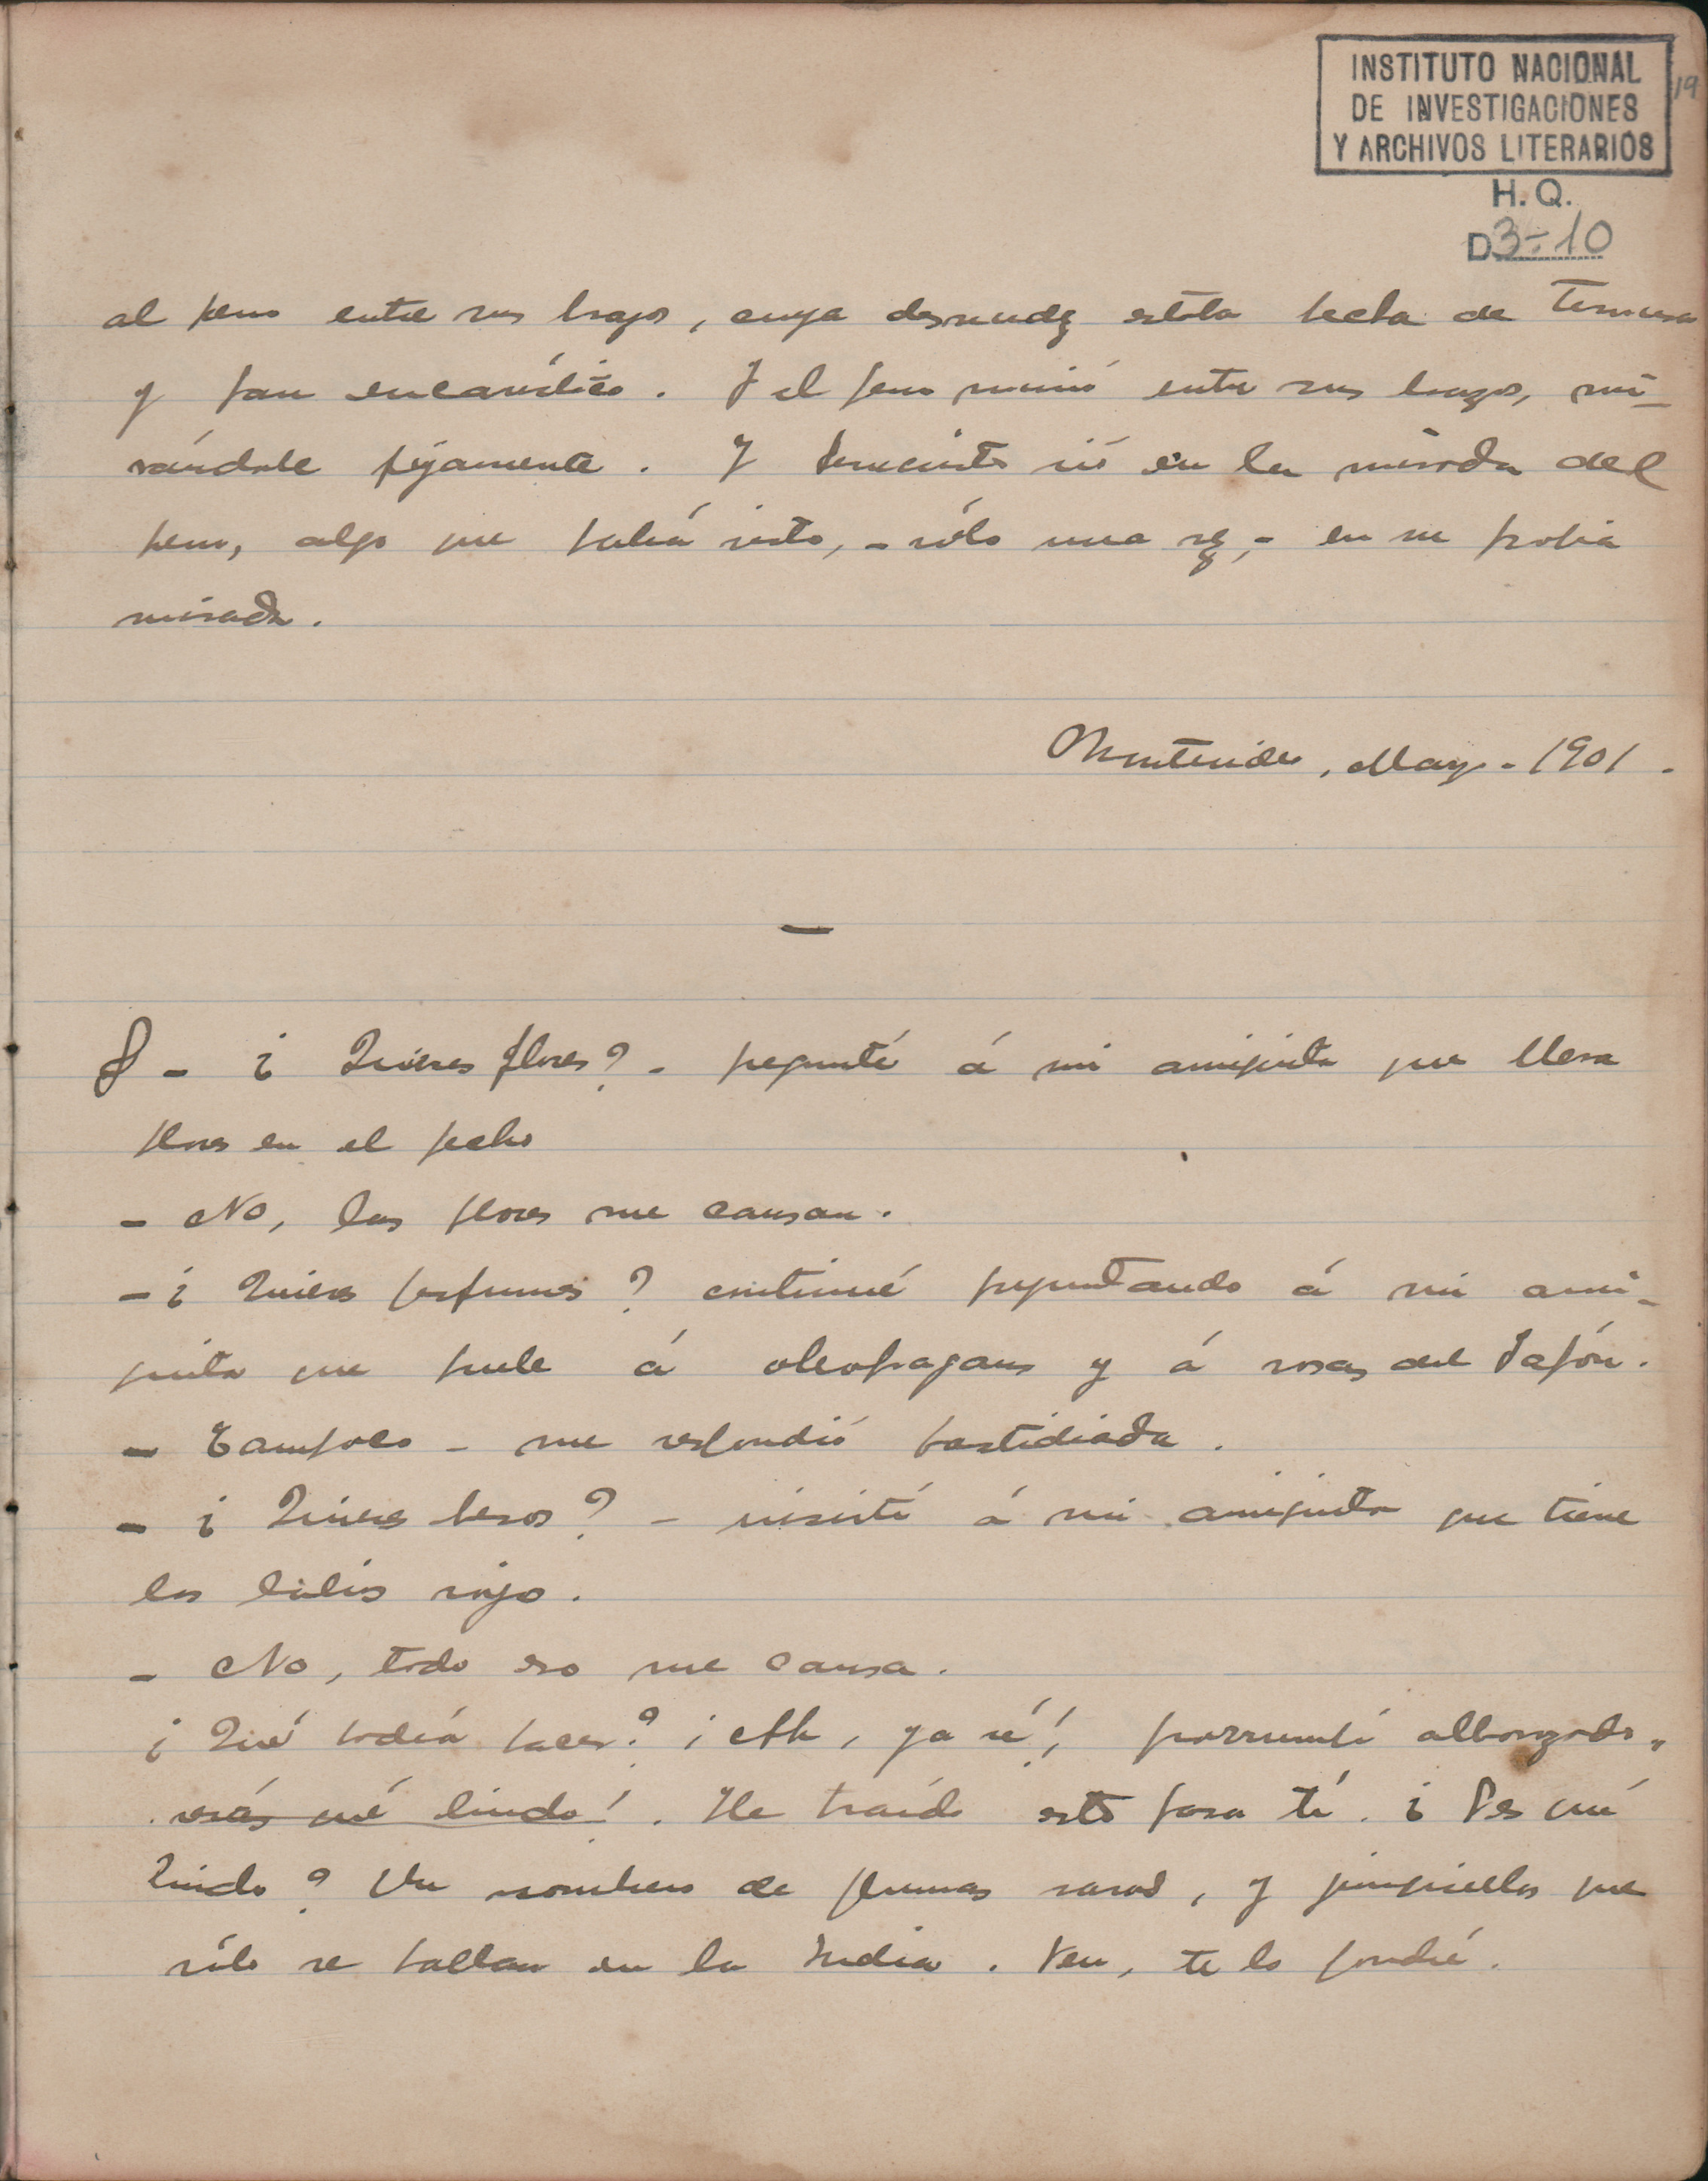 INSTITUTO NACIONAL
DE INVESTIGACIONES
Y ARCHIVOS LITERARIOS
19
H. Q.
D 3-10
al perro entre sus brazos, cuya desnudez estaba hecha de ternura
y pan eucarístico. Y el perro murió entre sus brazos, mi-
rándole fijamente. Y vió en la mirada del
perro, algo que había visto, - sólo una vez, - en su propia
mirada.
Montevideo, Mayo - 1901.
—
- ¿Quieres flores? - pregunté á mi amiguita que lleva
flores en el pecho
- No, las flores me cansan.
- ¿Quieres perfumes? continué preguntando á mi ami-
guita que huele á y á rosas del Japón.
- Tampoco - me respondió fastidiada.
- ¿Quieres besos? - insistí á mi amiguita que tiene
los labios rojos.
- No, todo eso me cansa.
¿Qué podría hacer? ¡Ah, ya sé! prorrumpí alborozado,
verás qué lindo!. He traído esto para tí. ¿Ves qué
lindo? Un sombrero de plumas raras, y que
sólo se hallan en la India. Ven, te lo pondré.